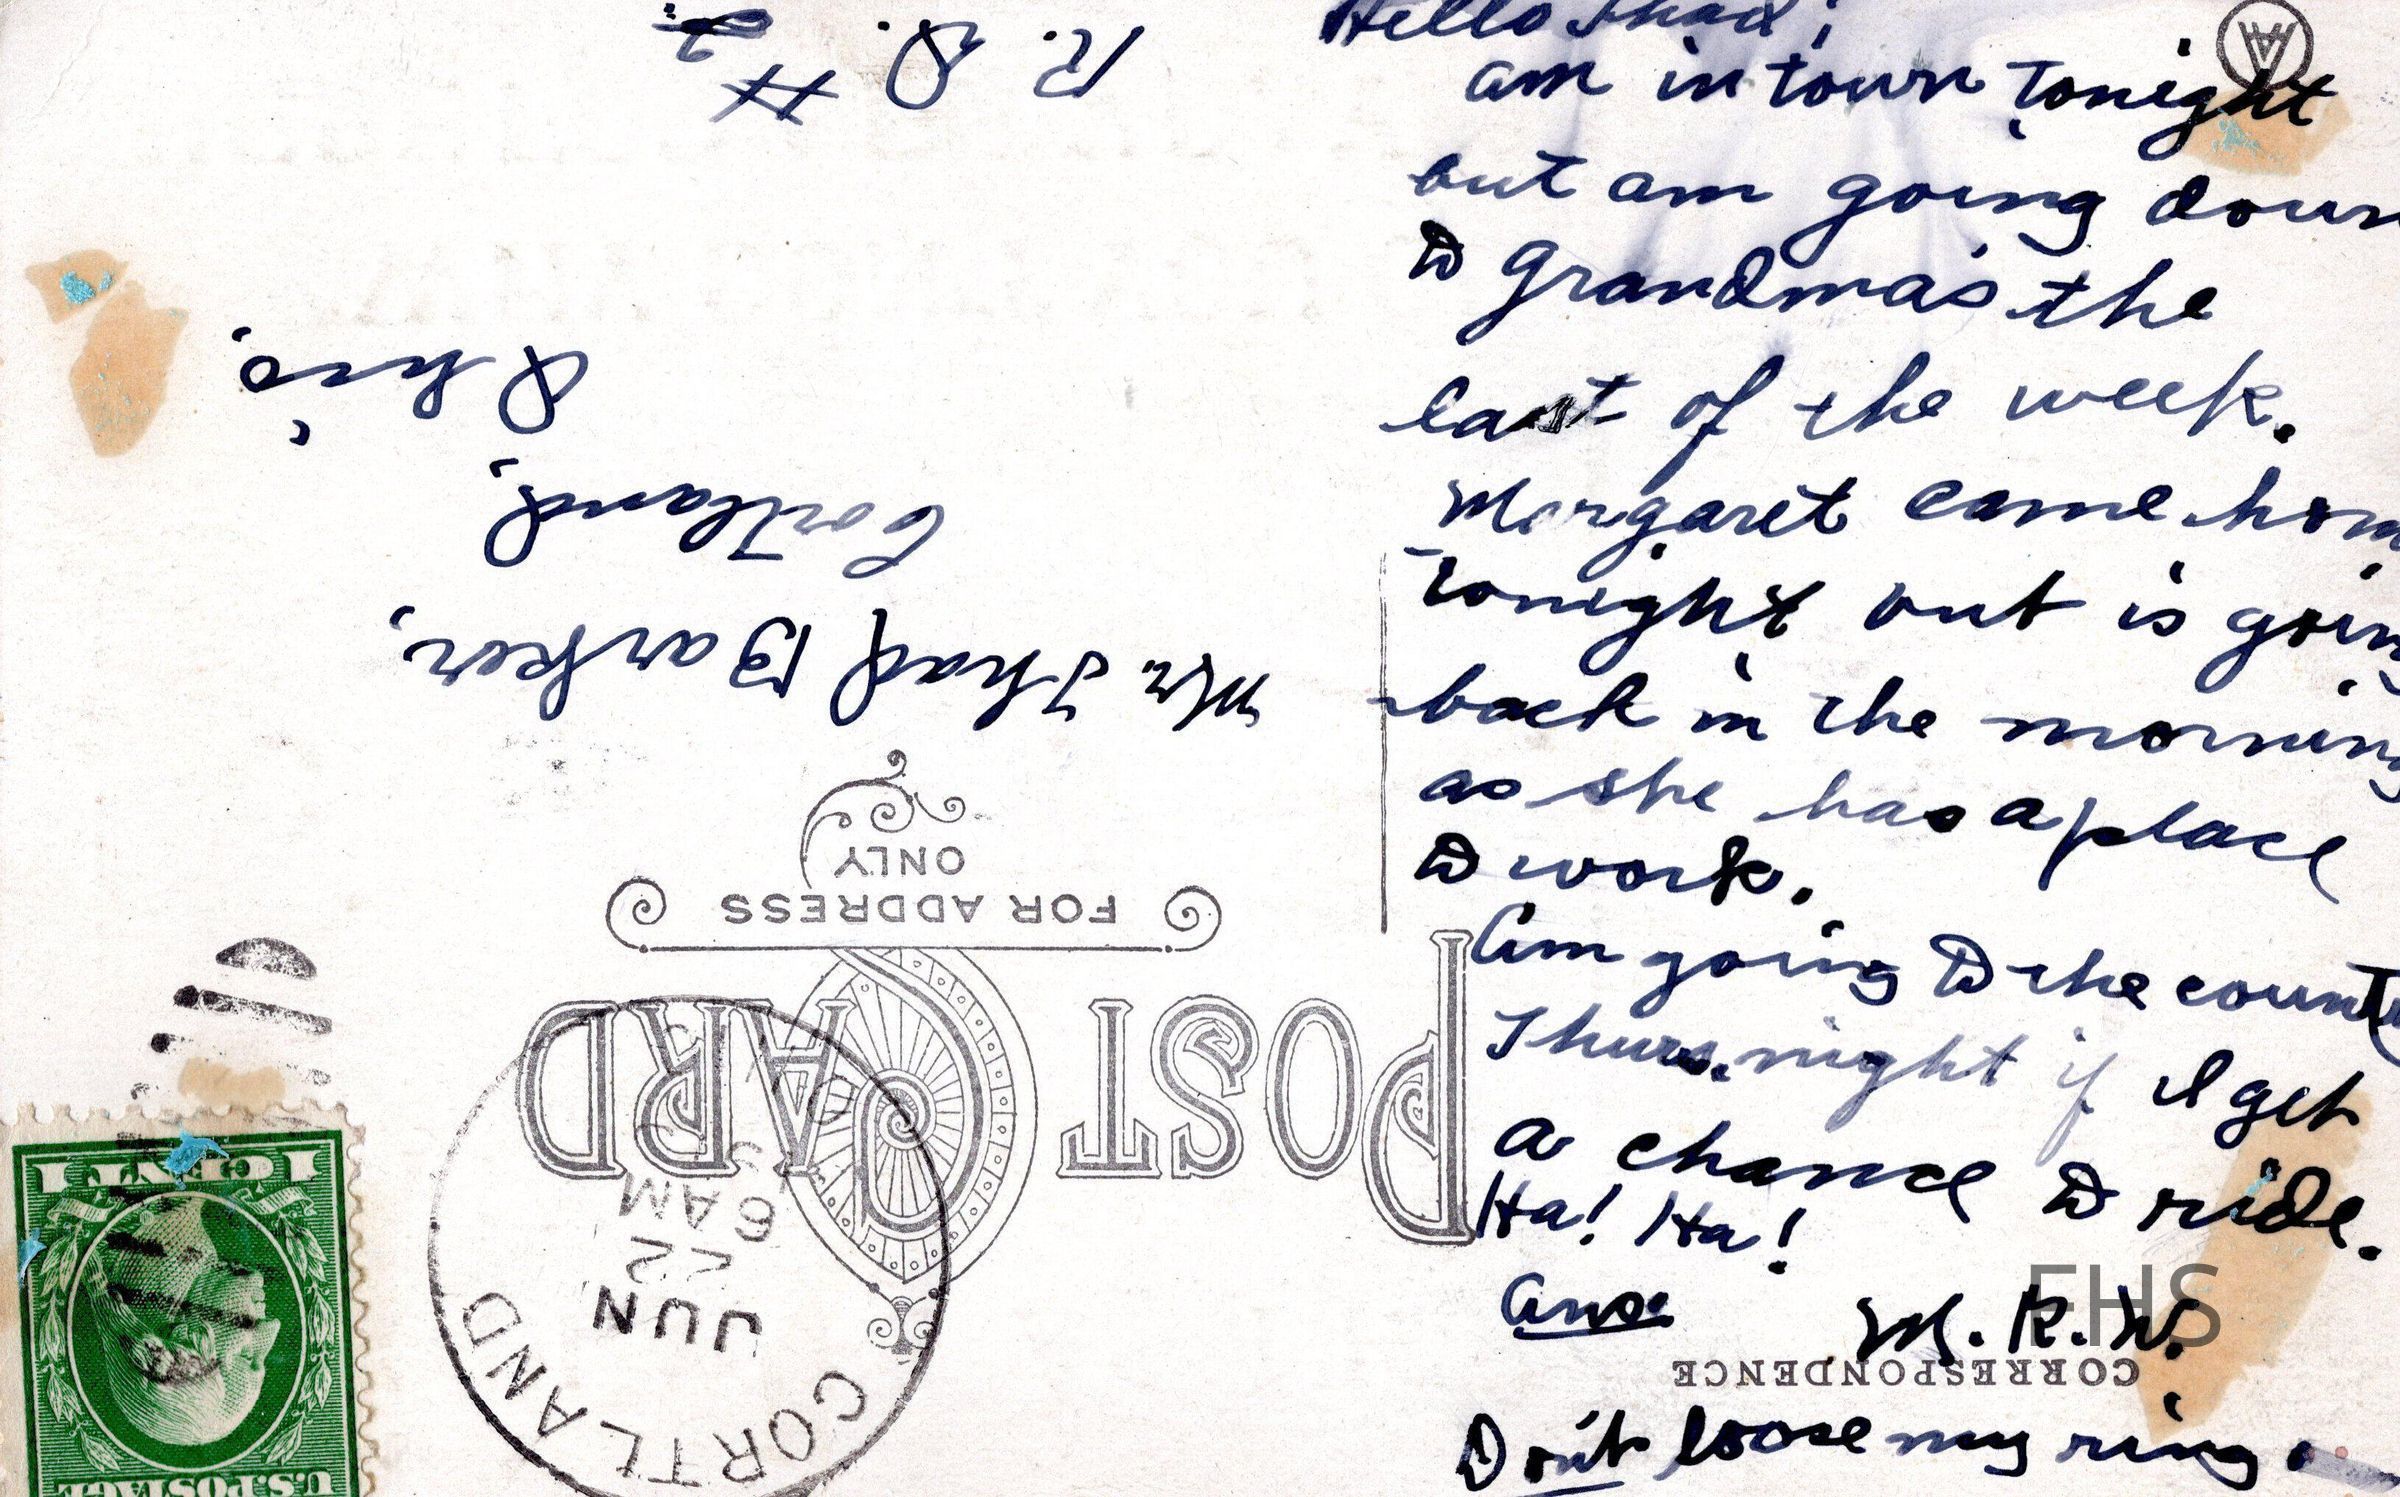 Hello Thad;
am in town tonight
but am going down
to grandma's the
last of the week.
Margaret came hom
tonight but is goin
back in the morning
as she has a place
to work.
Am going to the country
Thurs. night if I get
a chance to ride.
Ha! Ha!
Ans. M. R. W.
Don't loose my ring.
CORRESPONDENCE
FHS
POST CARD
FOR ADDRESS
ONLY
Mr. Thad Barker,
Cortland,
Ohio.
R. D. # 2.
CORTLAND
JUN
22
6 AM
OHIO
U.S. POSTAGE
1 CENT 1